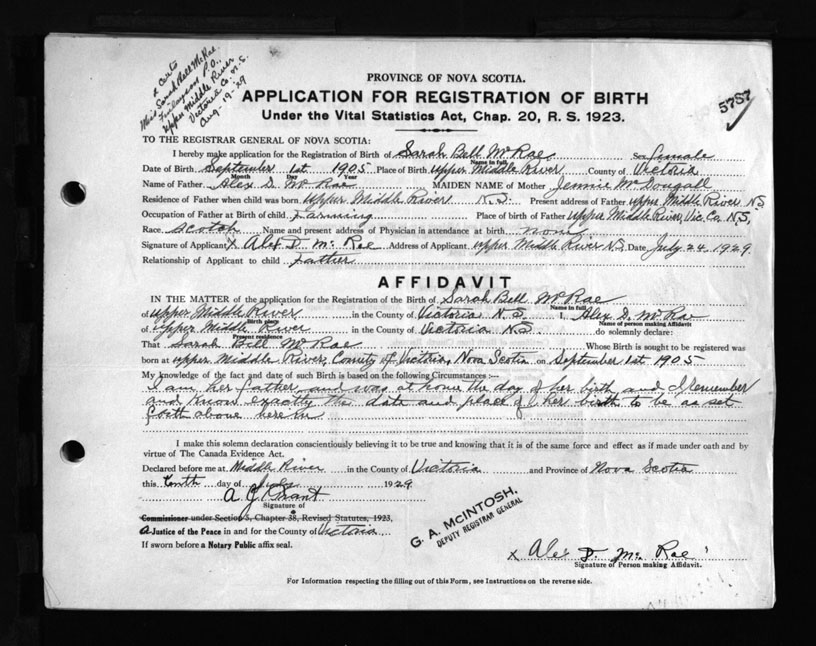 2 Certs
Miss Sarah Bell McRae
Finlayson P.O.,
Upper Middle River
Victoria Co. N.S.
Aug-19-29
5757
PROVINCE OF NOVA SCOTIA.
APPLICATION FOR REGISTRATION OF BIRTH
Under the Vital Statistics Act, Chap. 20, R. S. 1923.
TO THE REGISTRAR GENERAL OF NOVA SCOTIA:
I hereby make application for the Registration of Birth of Sarah Bell McRae Sex female
Name in full
Date of Birth September 1st 1905 Place of Birth Upper Middle River County of Victoria
Month Day Year
Name of Father Alex D. McRae MAIDEN NAME of Mother Jennie McDougall
Residence of Father when child was born Upper Middle River N.S. Present address of Father Upper Middle River N.S
Occupation of Father at Birth of child Farming Place of birth of Father Upper Middle River, Vic. Co. N.S.
Race Scotch Name and present address of Physician in attendance at birth none
Signature of Applicant X Alex D. Mc Rae Address of Applicant Upper Middle River N.S. Date July 24, 1929
Relationship of Applicant to child Father
AFFIDAVIT
IN THE MATTER of the application for the Registration of the Birth of Sarah Bell McRae
Name in full
of Upper Middle River in the County of Victoria N.S. I, Alex D. McRae
Birth place Name of person making Affidavit
of Upper Middle River in the County of Victoria N.S. do solemnly declare:
Present residence
That Sarah Bell McRae Whose Birth is sought to be registered was
born at Upper Middle River, County of Victoria, Nova Scotia on September 1st 1905
My knowledge of the fact and date of such Birth is based on the following Circumstances :—
I am her father and was at home the day of her birth and I remember
and know exactly the date and place of her birth to be as set
forth above herein
I make this solemn declaration conscientiously believing it to be true and knowing that it is of the same force and effect as if made under oath and by
virtue of The Canada Evidence Act.
Declared before me at Middle River in the County of Victoria and Province of Nova Scotia
this day of July 1929
A J Grant
Signature of
Commissioner under Section 3, Chapter 38, Revised Statutes, 1923,
A Justice of the Peace in and for the County of Victoria
If sworn before a Notary Public affix seal.
G. A. McINTOSH,
DEPUTY REGISTRAR GENERAL
X Alex D. Mc Rae
Signature of Person making Affidavit.
For Information respecting the filling out of this Form, see Instructions on the reverse side.